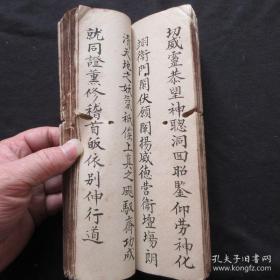 切威靈恭望神聰洞回昭鑒仰勞神化
翊衛門閣伏願闡揚威德告衛壇場朗
清天地之妖氛祇俟上真之興馭齋功成
就同證熏修稽首皈依別伸行道
孔夫子旧书网